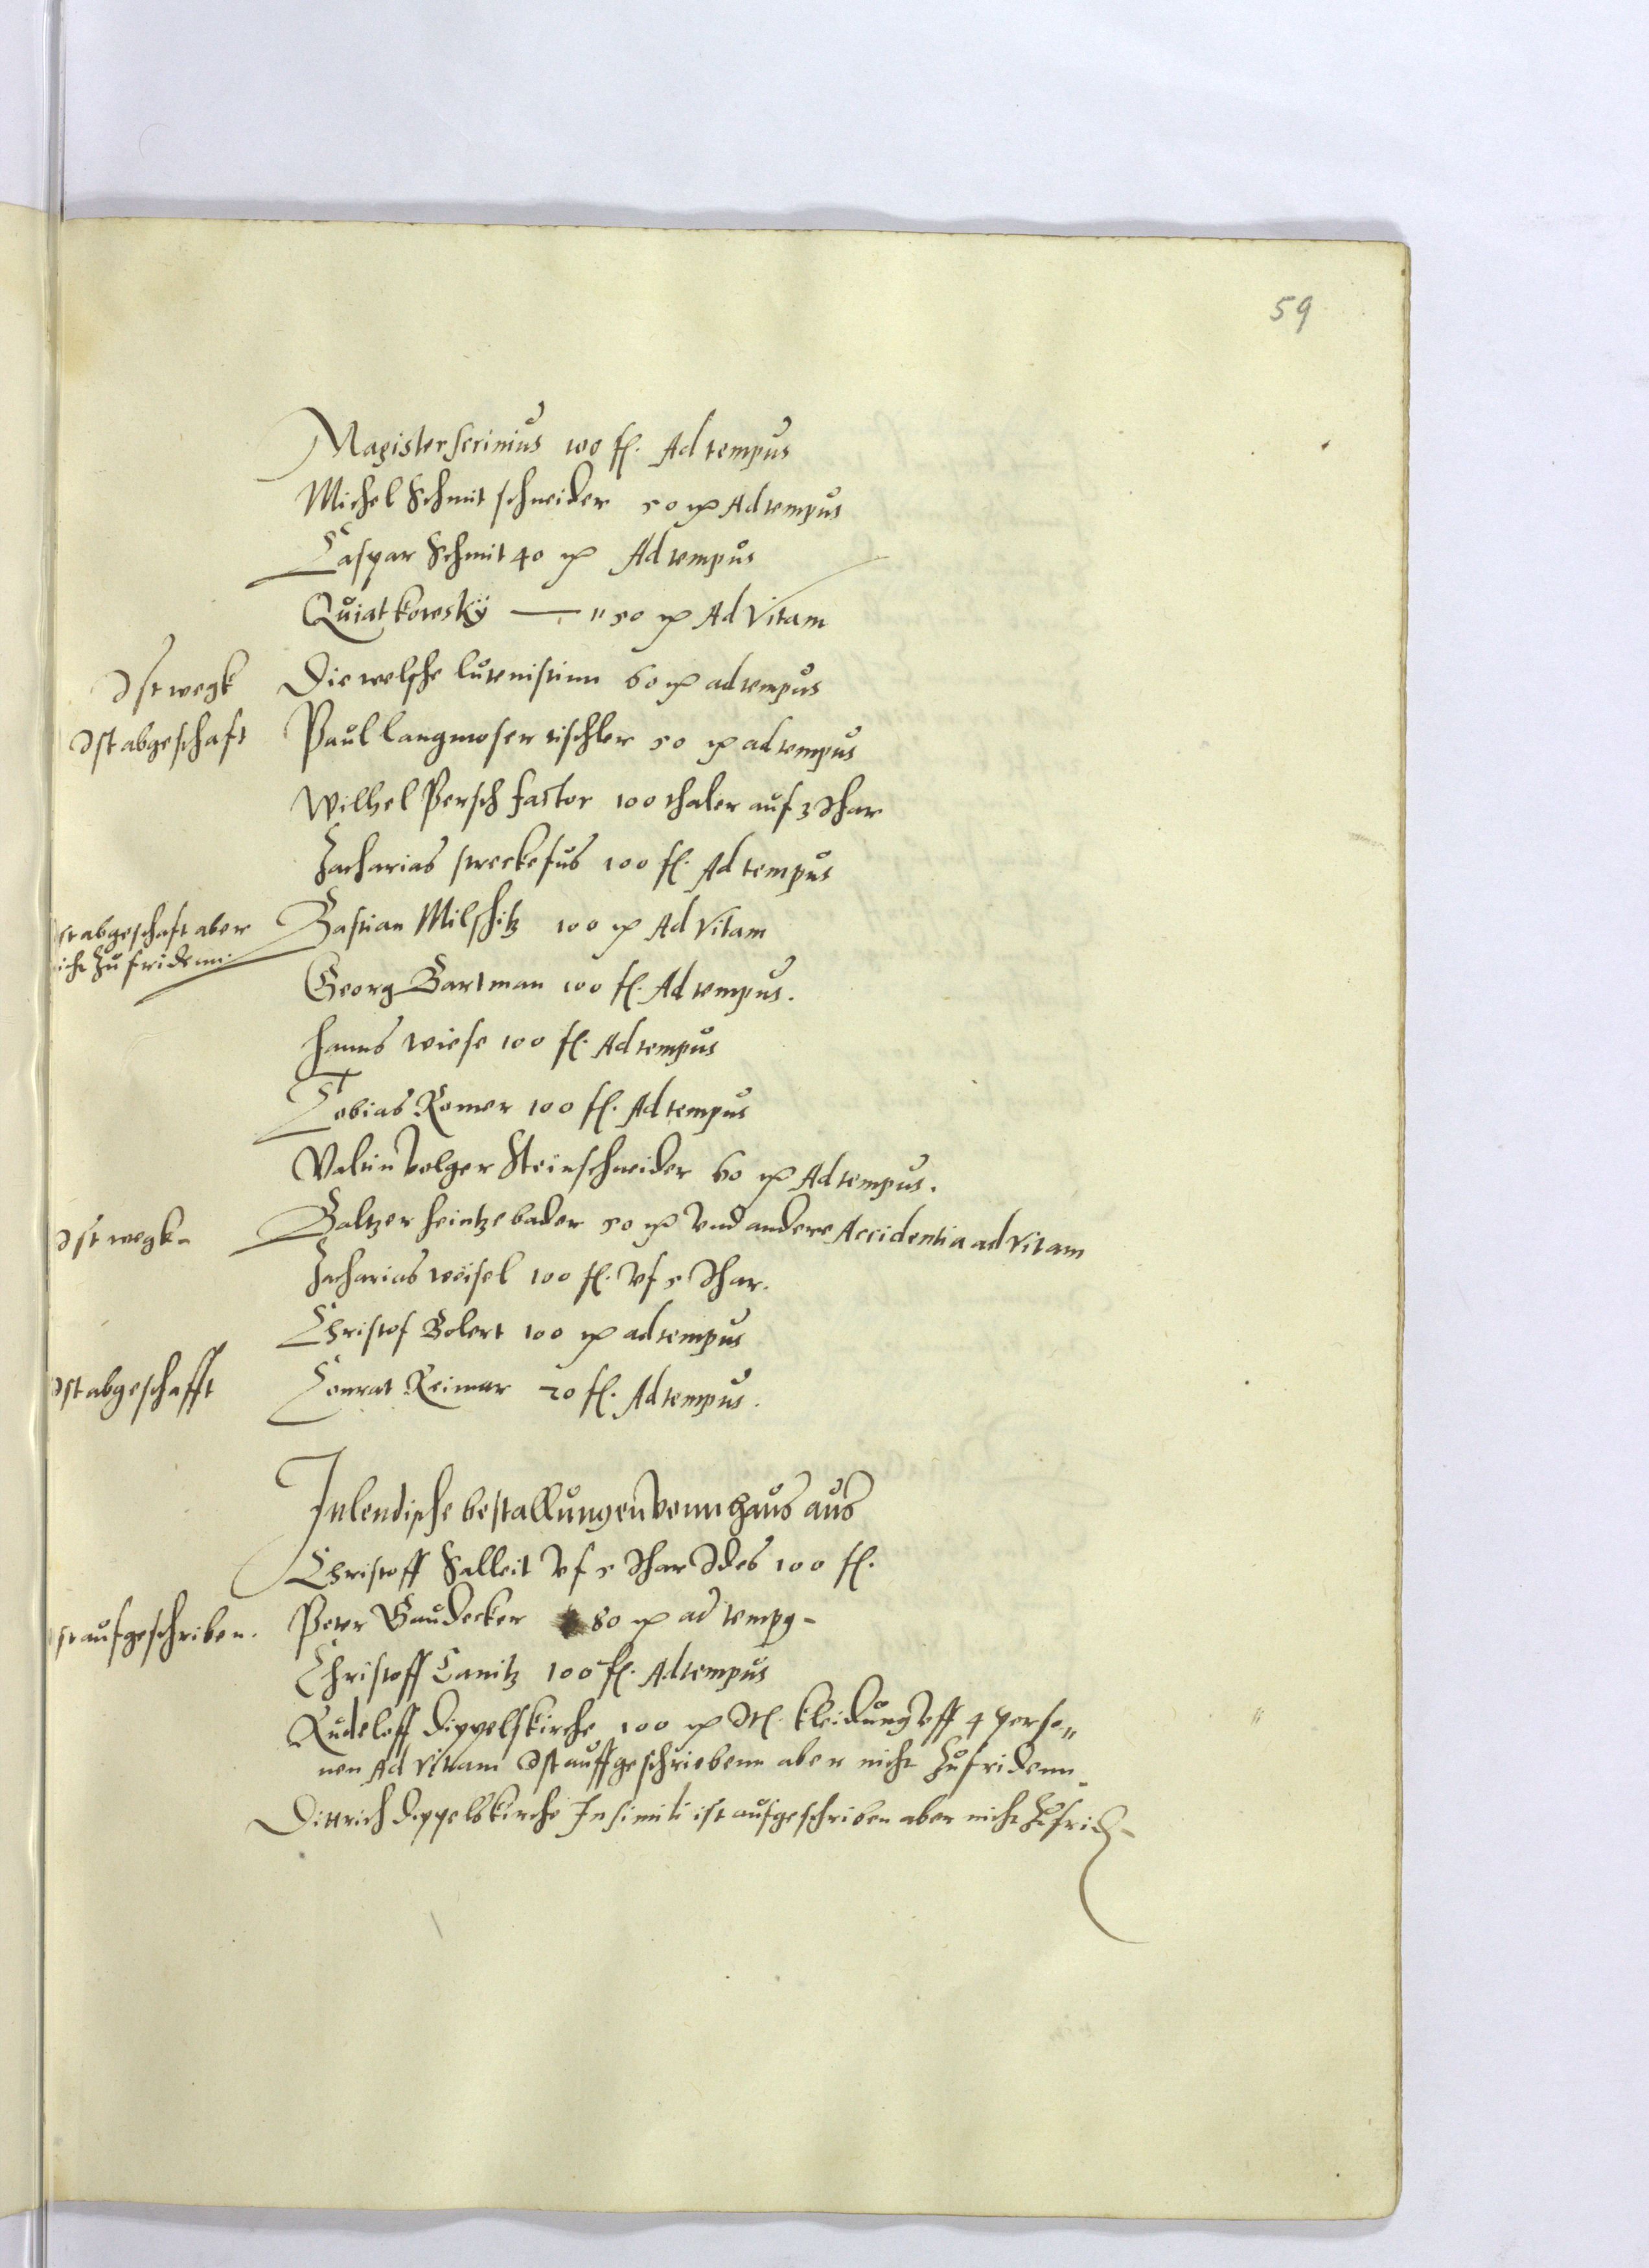 59
Magister Serinius 100 fl. Ad tempus
Michel Schmit schneider 50 mk Ad tempus
Caspar Schmit 40 mk Ad tempus
Quiatkowskÿ — " 50 mk Ad Vitam
Ist wegk Die welsche lutenistinn 60 mk ad tempus
Ist abgeschaft Paul langmoser tischler 50 mk ad tempus
Wilhel Persch factor 100 thaler auf 3 Ihar
Zacharias streckefus 100 fl. Ad tempus
Ist abgeschaft aber Bastian Milschitz 100 mk Ad Vitam
nicht zufridenn.
Georg Bartman 100 fl. Ad tempus.
Hanns Wiese 100 fl. Ad tempus
Tobias Romer 100 fl. Ad tempus
Valtin Volger Steinschneider 60 mk Ad tempus.
Ist wegk Baltzer Heintze bader 50 mk Vnd andere Accidentia ad Vitam
Zacharias weisel 100 fl. Vf 5 Ihar.
Christof Bolert 100 mk ad tempus
Ist abgeschafft Conrat Reimar 20 fl. Ad tempus.
Inlendische bestallungen Vonn Haus aus
Christoff Falleit Vf 5 Ihar Ides 100 fl.
Ist aufgeschriben. Peter Gaudecker 80 mk ad temp9
Christoff Canitz 100 fl. Ad tempus
Rudeloff Dippelskirche 100 mk Itl. kleidung Vff 4 perso„
nen Ad Vitam Ist auffgeschriebenn aber nicht zufridenn
Dittrich Dippelskirche In simili ist aufgeschriben aber nicht zufrid